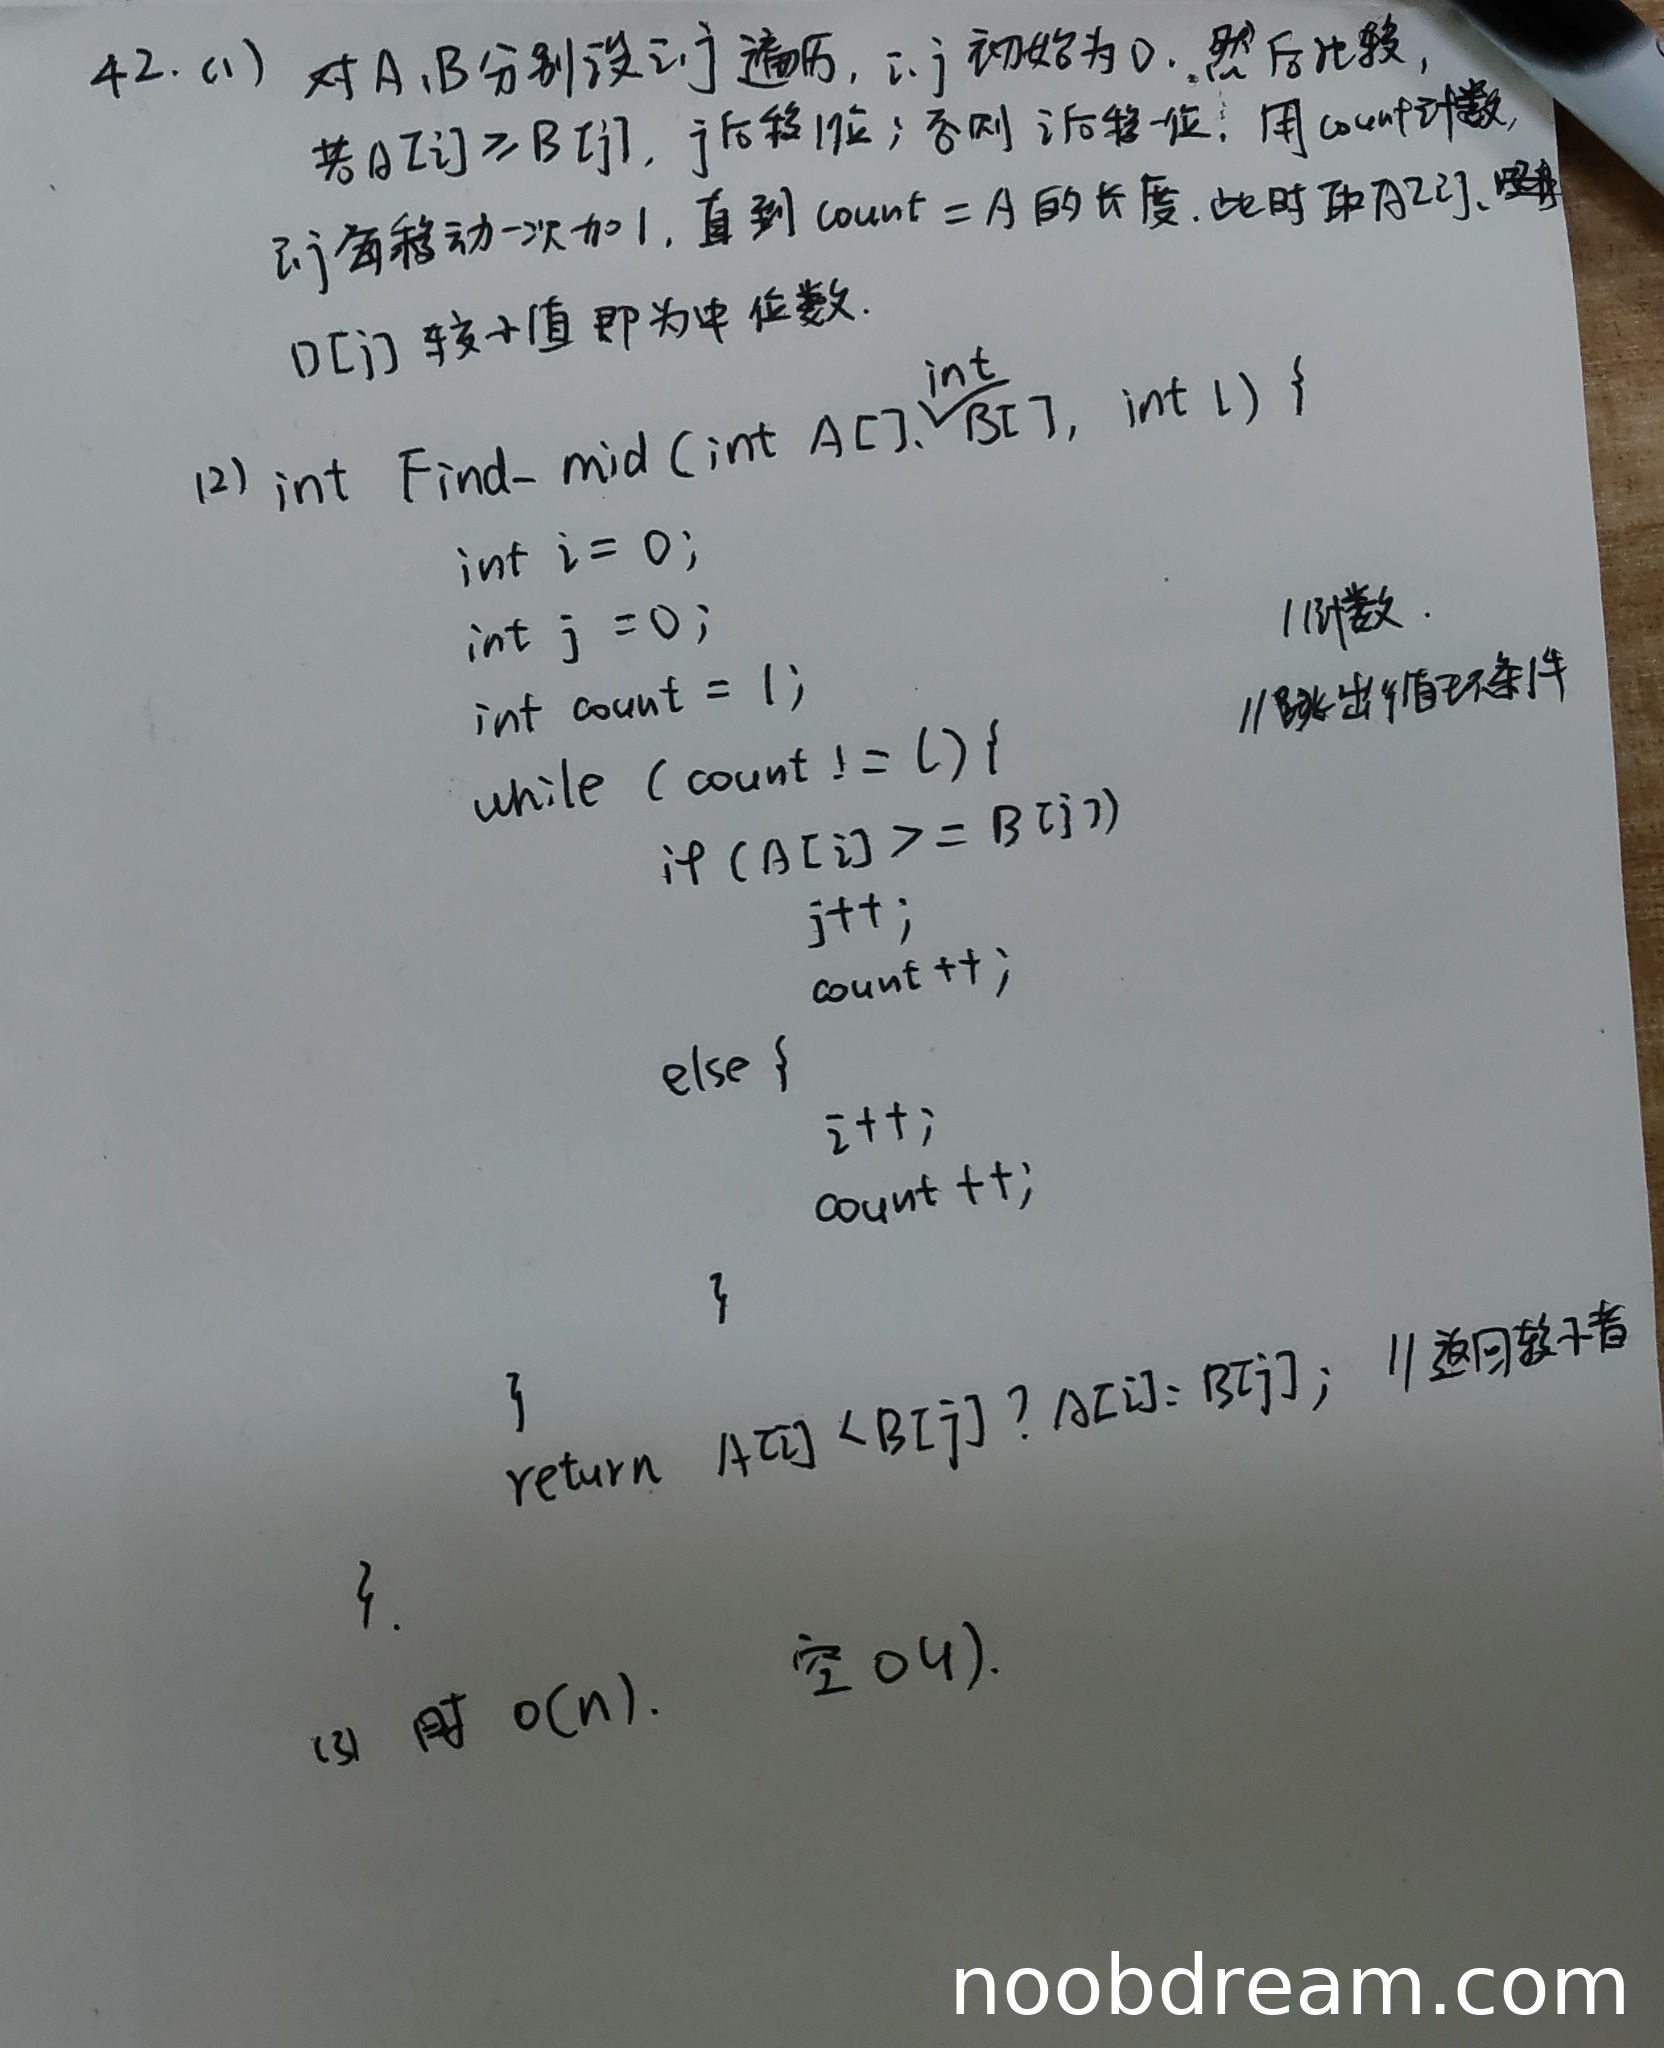 42. (1) 对A、B分别设i.j遍历, i.j初始为0. 然后比较,
若A[i]≥B[j], j后移1位; 否则i后移一位. 用count计数,
i.j每移动一次加1, 直到count=A的长度. 此时取A[i]、
B[j]较小值即为中位数.
(2) int Find_mid(int A[]、int B[], int l) {
int i = 0;
int j = 0;
int count = 1; //计数.
while (count != l) { //跳出循环条件
if (A[i] >= B[j])
j++;
count++;
else {
i++;
count++;
}
}
return A[i] < B[j] ? A[i] : B[j]; //返回较小者
}.
(3) 时 O(n). 空 O(1).
noobdream.com